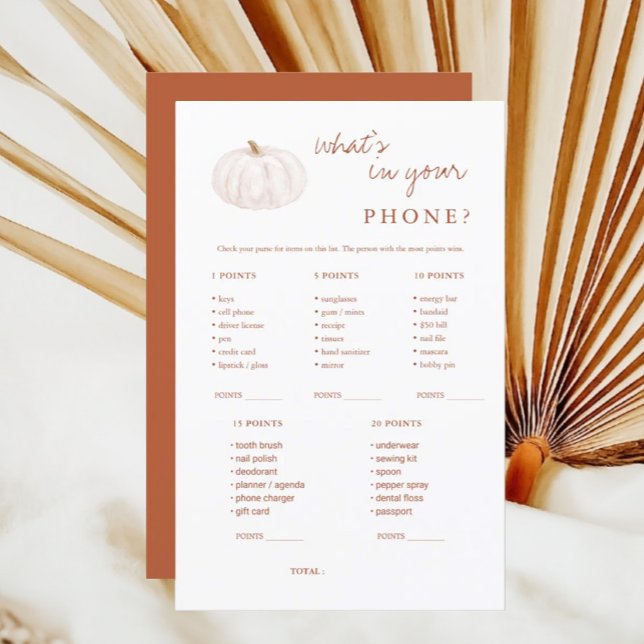 what's
in your
PHONE?
Check your purse for items on this list. The person with the most points wins.
1 POINTS
• keys
• cell phone
• driver license
• pen
• credit card
• lipstick / gloss
POINTS ________
5 POINTS
• sunglasses
• gum / mints
• receipt
• tissues
• hand sanitizer
• mirror
POINTS ________
10 POINTS
• energy bar
• bandaid
• $50 bill
• nail file
• mascara
• bobby pin
POINTS ________
15 POINTS
• tooth brush
• nail polish
• deodorant
• planner / agenda
• phone charger
• gift card
POINTS ________
20 POINTS
• underwear
• sewing kit
• spoon
• pepper spray
• dental floss
• passport
POINTS ________
TOTAL :